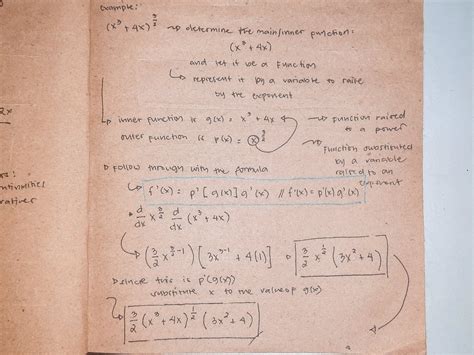 example:
(x³ + 4x)^(3/2) ~> determine the main/inner function:
(x³ + 4x)
and let it be a function
↳ represent it by a variable to raise
by the exponent
▷ inner function is g(x) = x³ + 4x
outer function is p(x) = x^(3/2)
~> function raised
to a power
function substituted
by a variable
raised to an
exponent
2x
▷ Follow through with the formula
f'(x) = p'[g(x)] g'(x) // f'(x) = p'(x) g'(x)
d/dx x^(3/2) d/dx (x³ + 4x)
(3/2 x^(3/2 - 1)) [3x^(3-1) + 4(1)]
3/2 x^(1/2) (3x² + 4)
▷ since this is p'(g(x))
substitute x to the value of g(x)
3/2 (x³ + 4x)^(1/2) (3x² + 4)